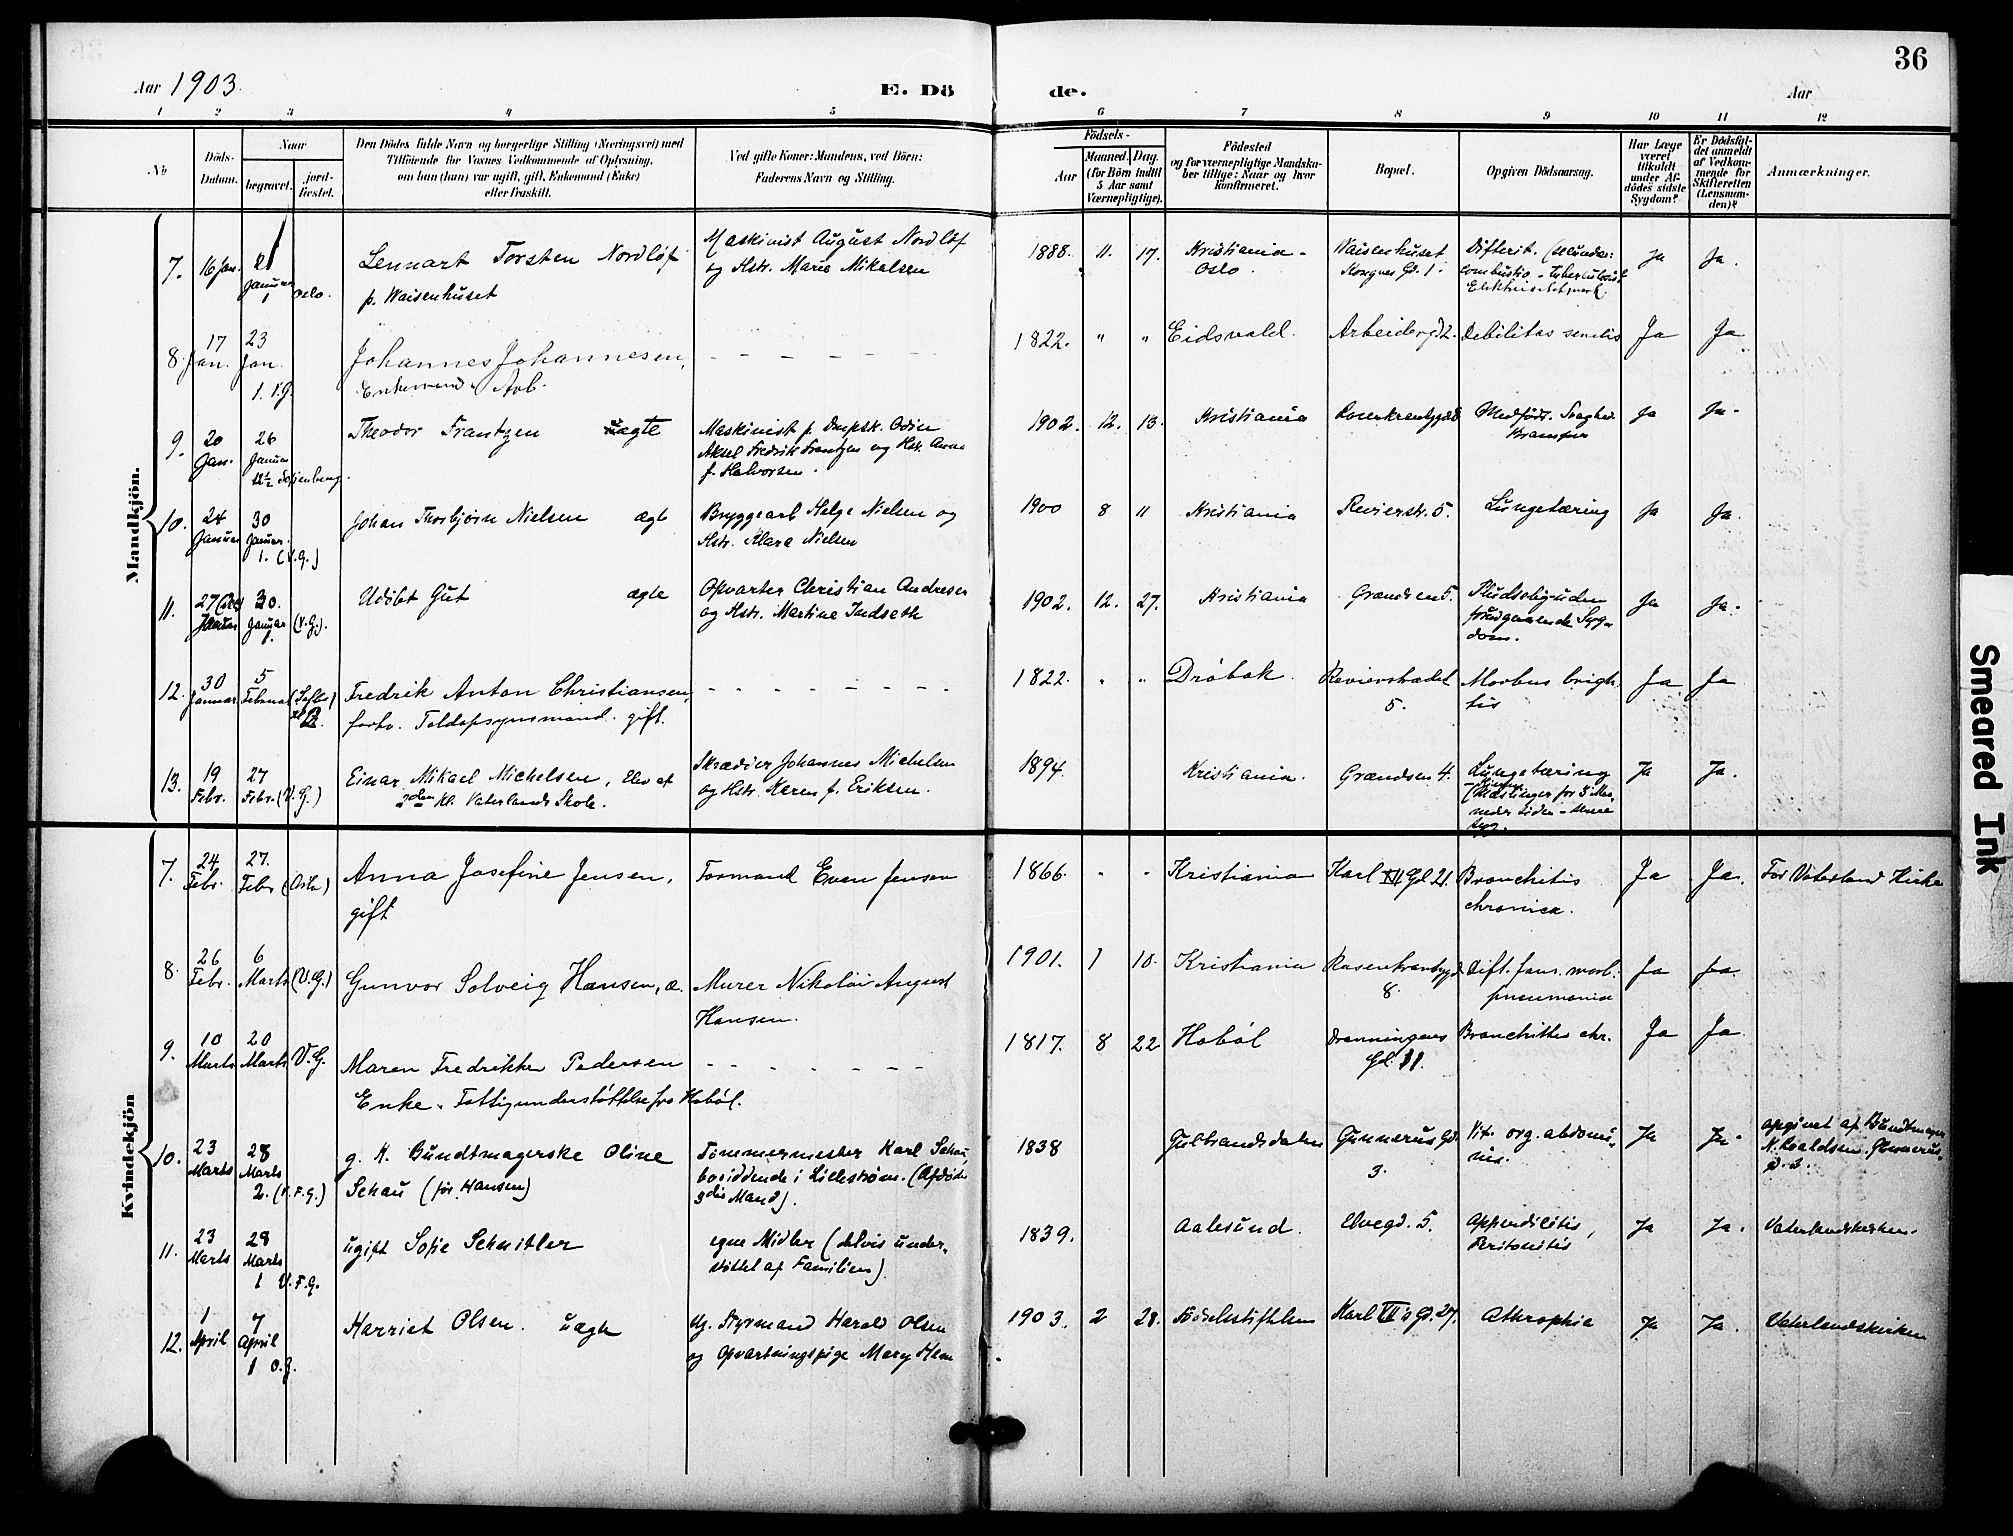 36
Aar 1903.
E. Dö
de.
Aar
1 2 3 4 5
6 7 8 9 10 11 12
No
Döds-
Datum.
Naar
begravet.
jord-
fæstet.
Den Dödes fulde Navn og borgerlige Stilling (Næringsvei) med
Tilföiende for Voxnes Vedkommende af Oplysning,
om han (hun) var ugift, gift, Enkemand (Enke)
eller fraskilt.
Ved gifte Koner: Mandens, ved Börn:
Faderens Navn og Stilling.
Födsels-
Aar
Maaned. Dag.
(for Börn indtil
5 Aar samt
Værnepligtige).
Födested
og for værnepligtige Mandska-
ber tillige: Naar og hvor
konfirmeret.
Bopæl.
Opgiven Dödsaarsag.
Har Læge
været
tilkaldt
under Af-
dödes sidste
Sygdom?
Er Dödsfal-
det anmeldt
af Vedkom-
mende for
Skifteretten
(Lensman-
den)?
Anmærkninger.
Mandkjön.
7. 16 Jan. 21 Januar 1 Oslo.
Lennart Torsten Nordløf
p. Waisenhuset
Maskinist August Nordløf
og Hstr. Marie Mikalsen
1888. 11. 17. Kristiania -
Oslo.
Waisenhuset
Kongens Gd. 1.
Difterit.
Ja Ja.
8. 17 Jan. 23 Jan. 1. V.G.
Johannes Johannesen,
Enkemand. Arb.
1822. " " Eidsvold. Arbeidergd 2. Debilitas senilis Ja Ja
9. 20 Jan. 26 Januar 12½ Sofienberg.
Theodor Frantzen ægte
Maskinist p. Dmpsk. Odin
Aksel Fredrik Frantzen og Hstr. Anna
f. Halvorsen.
1902. 12. 13. Kristiania Rosenkrantzgd 8 Medfødt Svaghed
Ja Ja -
10. 24 Januar 30 Januar. 1. (V.G.)
Johan Thorbjørn Nielsen ægte
Bryggearb Helge Nielsen og
Hstr. Klara Nielsen
1900 8 11 Kristiania Revierstr. 5. Lungetæring Ja Ja.
11. 27 Januar 30. Januar 1. (V.G.).
Udøbt Gut ægte
Opvarter Christian Andresen
og Hstr. Martine Indseth
1902. 12. 27. Kristiania Grændsen 5. Pludselig uden
forudgaaende Syg-
dom.
Ja Ja.
12. 30 Januar 5 Februar
Fredrik Anton Christiansen,
forhv. Toldopsynsmand. gift.
1822. " " Drøbak. Revierstrædet
5.
Morbus brigh-
tii
Ja Ja
13. 19 Febr. 27 Febr. (V.G.)
Einar Mikael Michelsen, Elev af
2den Kl. Vaterlands Skole.
Skrædder Johannes Michelsen
og Hstr. Karen f. Eriksen.
1894. Kristiania. Grændsen 4. Lungetæring
(Mæslinger for 3 Maa-
neder siden -
syg.
Ja Ja.
Kvindekjön
7. 24 Febr. 27. Febr
Anna Josefine Jensen,
gift
Formand Even Jensen
1866. " " Kristiania Karl XII Gd 21. Bronchitis
chronica.
Ja Ja. For Vaterland Kirke
8. 26 Febr. 6 Marts (V.G.)
Gunvor Solveig Hansen, æ.
Murer Nikolai August
Hansen.
1901. 1 10. Kristiania Rosenkrantzgd.
8.
Dift. faus. morb.
pneumonia
Ja Ja.
9. 10 Marts 20 Marts V.G.
Maren Fredrikke Pedersen
Enke. Fattigunderstøttelse fra Hobøl.
1817. 8 22 Hobøl Dronningens
Gd. 11.
Bronchitis chr. Ja Ja
10. 23 Marts 28 Marts 2. (V.F.G.)
g. K. Bundtmagerske Oline
Schau (før Hansen)
Tømmermester Karl Schau
bosiddende i Lillestrøm. (Afdødes
3die Mand).
1838 Gulbrandsdalen Gunnerus Gd.
3.
Vit. org. abdomi-
nis.
Ja Ja. opgivet af Bundtmager
11. 23 Marts 28 Marts 1 V.F.G.
ugift Sofie Schnitler
egne Midler (delvis under-
støttet af Familien).
1839. Aalesund. Elvegd. 5. Appendicitis,
Peritonitis
Ja Ja. Vaterlandskirken.
12. 1 April 7 April 1 O.G.
Harriet Olsen. uægte
Ug. Styrmand Harald Olsen
og Opvartningspige Mary
1903. 2 28. Fødselsstiftelsen Karl XII's Gd. 27. Athrophia Ja Ja. Vaterlandskirken
Smeared Ink